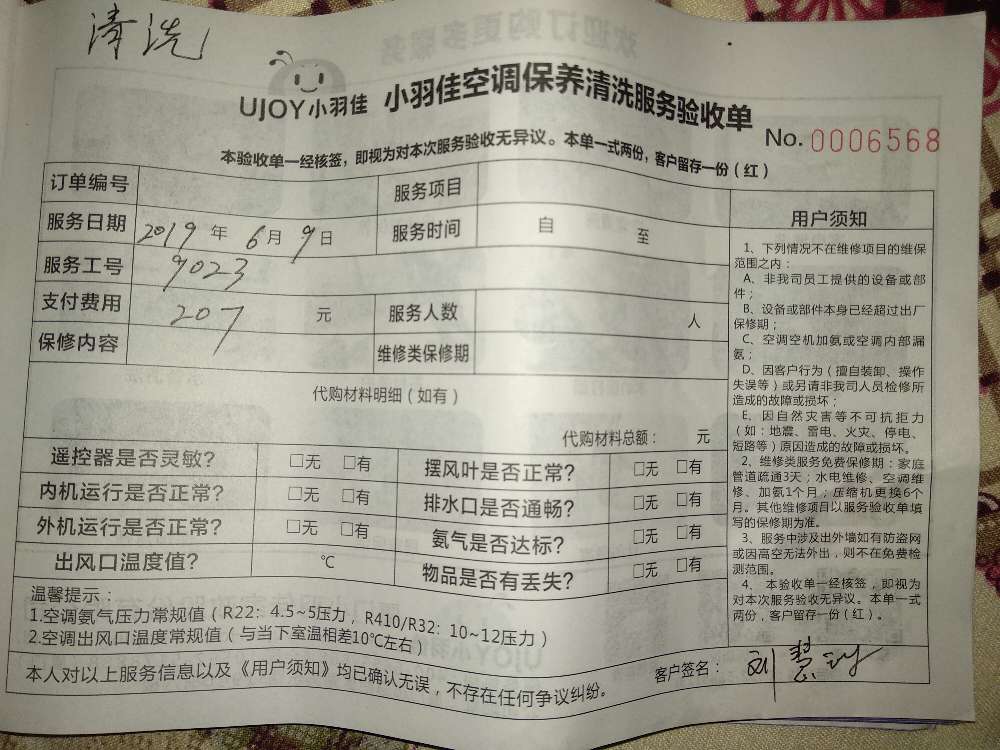 清洗
UJOY小羽佳 小羽佳空调保养清洗服务验收单
No. 0006568
本验收单一经核签，即视为对本次服务验收无异议。本单一式两份，客户留存一份（红）
订单编号 服务项目
服务日期 2019 年 6 月 9 日 服务时间 自 至
服务工号 9023
支付费用 207 元 服务人数 人
保修内容 维修类保修期
代购材料明细（如有）
代购材料总额： 元
遥控器是否灵敏？ □无 □有 摆风叶是否正常？ □无 □有
内机运行是否正常？ □无 □有 排水口是否通畅？ □无 □有
外机运行是否正常？ □无 □有 氨气是否达标？ □无 □有
出风口温度值？ ℃ 物品是否有丢失？ □无 □有
温馨提示：
1.空调氨气压力常规值（R22：4.5~5压力，R410/R32：10~12压力）
2.空调出风口温度常规值（与当下室温相差10℃左右）
本人对以上服务信息以及《用户须知》均已确认无误，不存在任何争议纠纷。
客户签名： 刘慧
用户须知
1、下列情况不在维修项目的维保
范围之内：
A、非我司员工提供的设备或部
件；
B、设备或部件本身已经超过出厂
保修期；
C、空调空机加氨或空调内部漏
氨；
D、因客户行为（擅自装卸、操作
失误等）或另请非我司人员检修所
造成的故障或损坏；
E、因自然灾害等不可抗拒力
（如：地震、雷电、火灾、停电、
短路等）原因造成的故障或损坏。
2、维修类服务免费保修期：家庭
管道疏通3天；水电维修、空调维
修、加氨1个月；压缩机更换6个
月。其他维修项目以服务验收单填
写的保修期为准。
3、服务中涉及出外墙如有防盗网
或因高空无法外出，则不在免费检
测范围。
4、本验收单一经核签，即视为
对本次服务验收无异议。本单一式
两份，客户留存一份（红）。